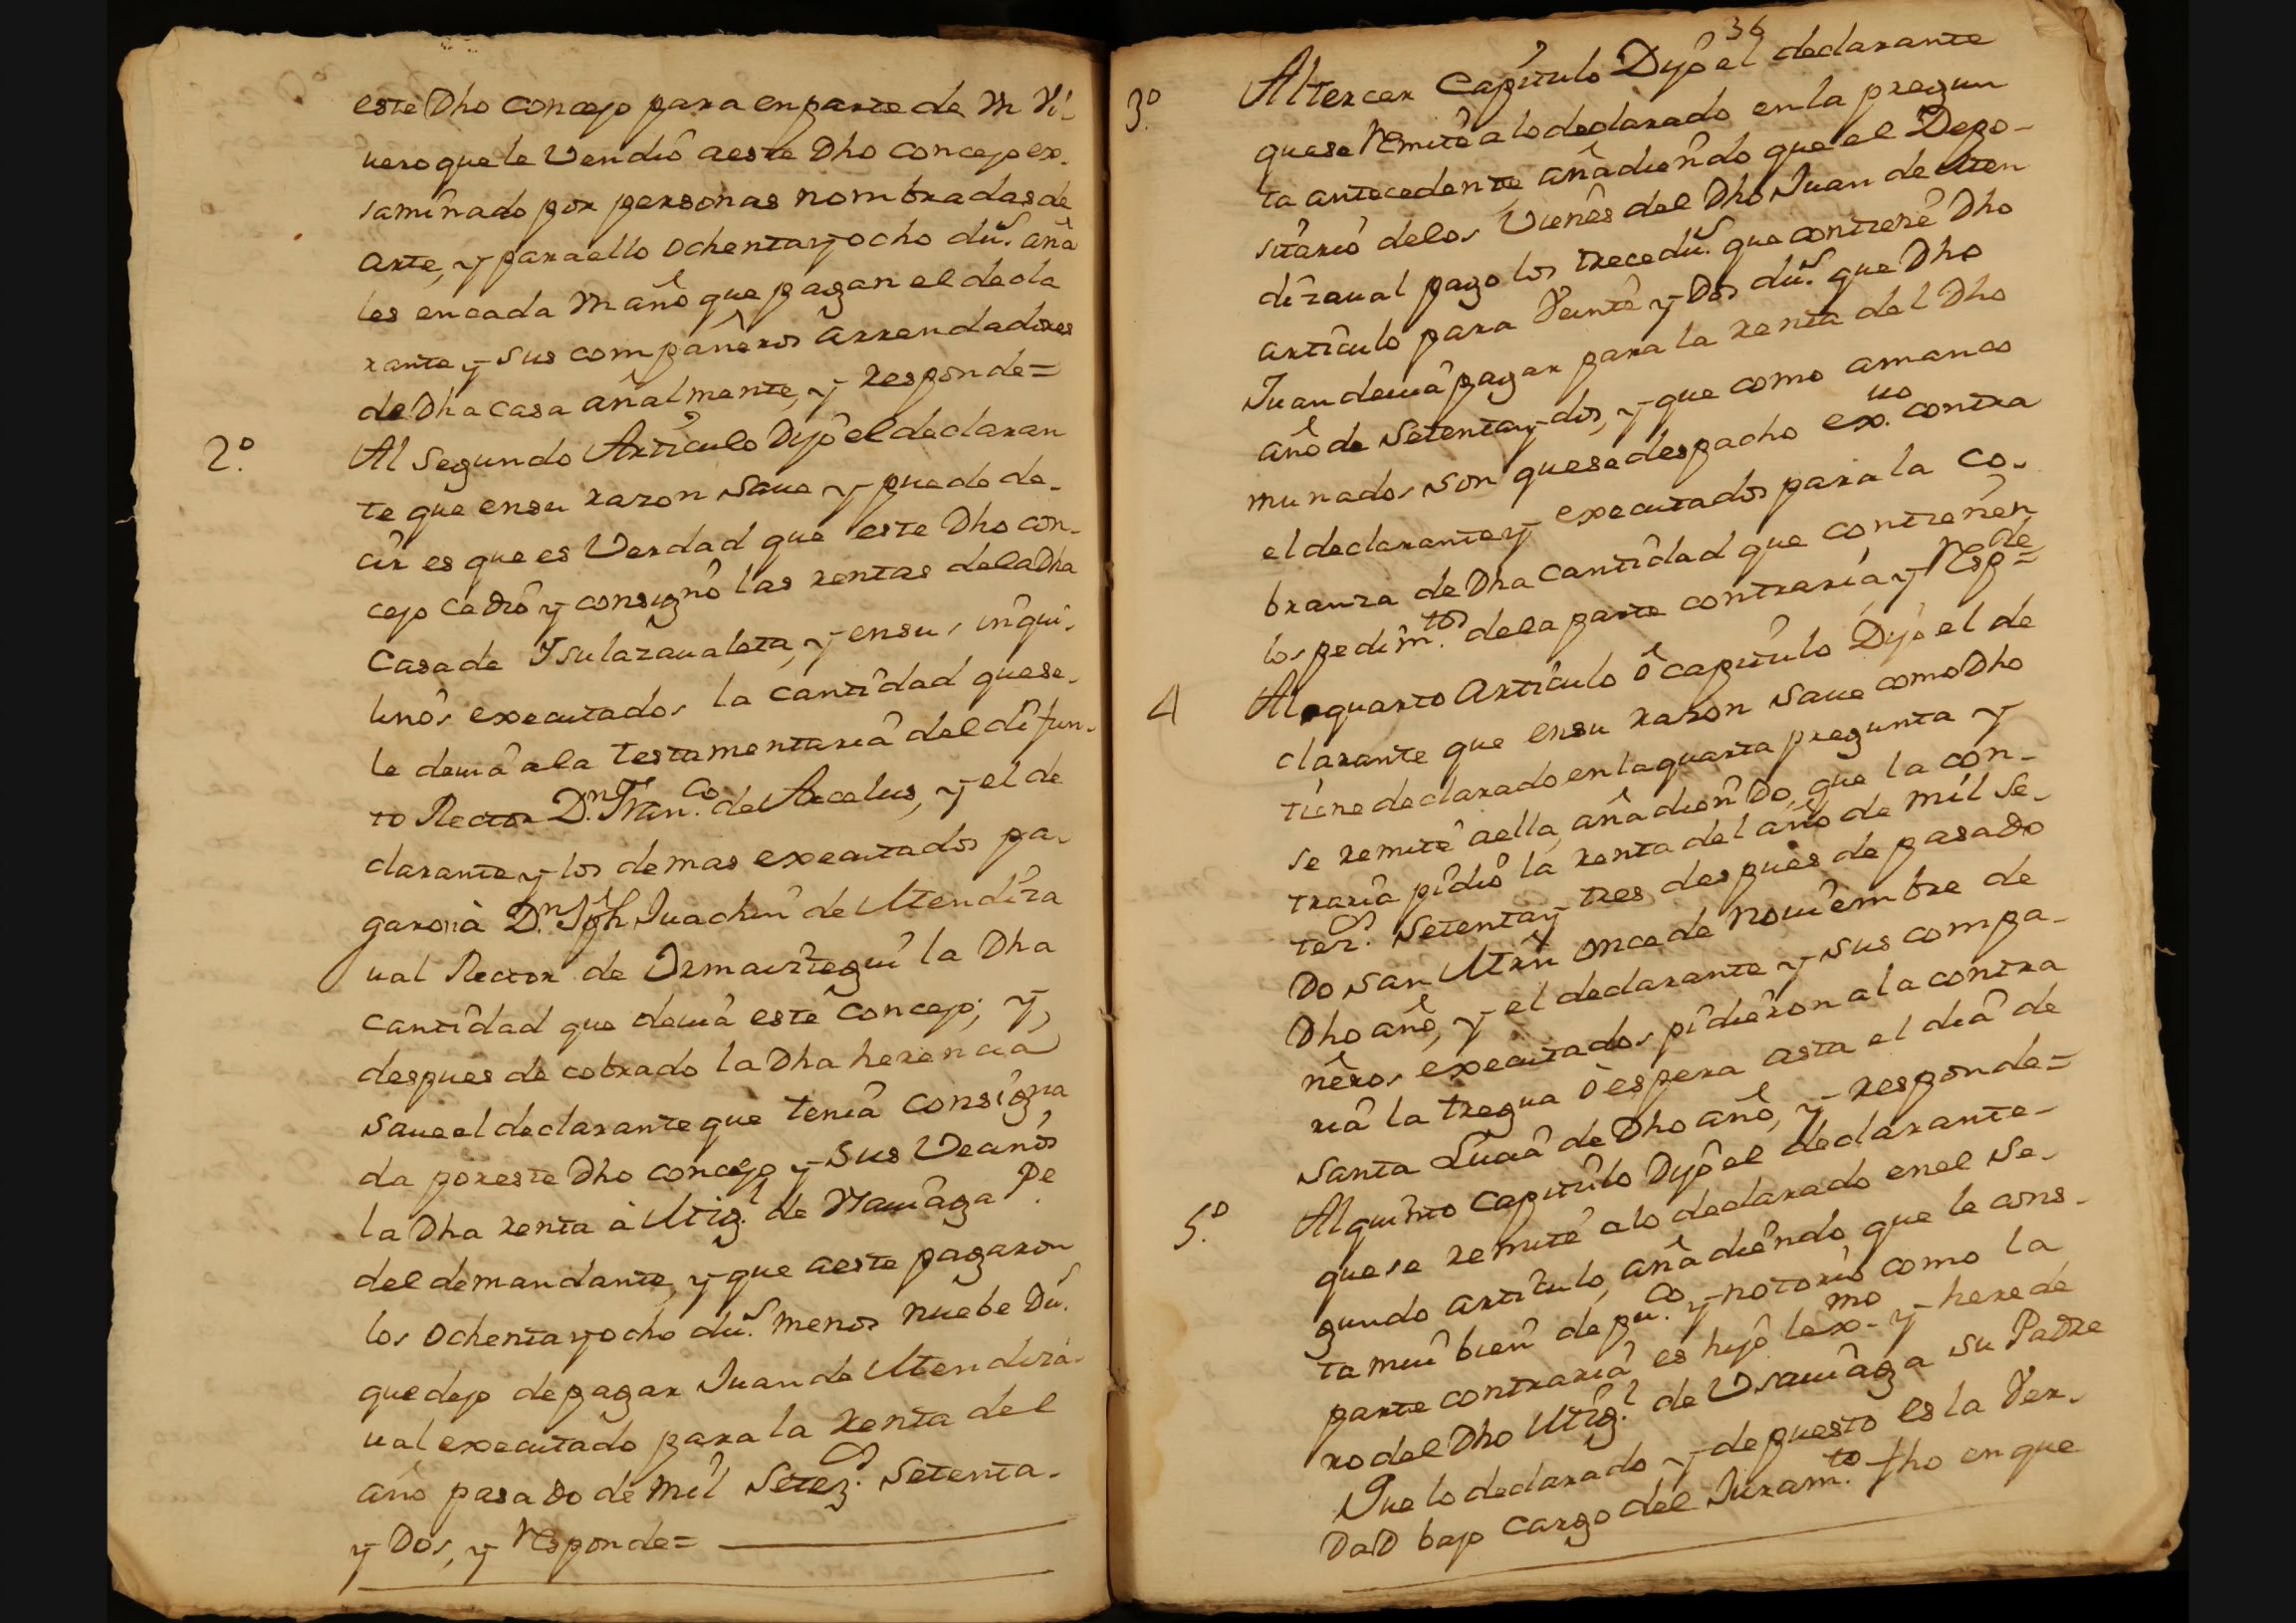 este Dho concejo para en parte de m Vi-
uero que le Vendiô a este Dho concejo ex-
saminado por personas nombradas de
arte, y para ello ochenta y ocho dus. aña
les en cada m año que pagan el decla
rante y sus compañeros arrendadores
de Dha casa añalmente, y responde=
2.º Al Segundo Artículo Dijo el declaran
te que en su razon saue y puede de-
cir es que es Verdad que este Dho con-
cejo Cedió y consignó las rentas de la Dha
Casa de Ysulazaualeta, y en sus inqui-
linos executados la cantidad que se
le deuia a la testamentaria del difun-
to Rector D.n Fran.co de Arcelus, y el de
clarante y los demas executados pa-
garon à D.n Jph Juachin de Mendiza
ual Rector de Ormaiztegui la Dha
cantidad que deuia este Concejo; y,
despues de cobrado la Dha herencia
saue el declarante que tenia consigna
da por este Dho concejo y sus Vecinos
la Dha renta à Mig.l de Usauiaga P.e
del demandante, y que a este pagaron
los ochenta y ocho dus. menos nuebe Dus.
que dejo de pagar Juan de Mendiza-
ual executado para la Renta del
año pasado de mil Setez.os Setenta-
y Dos, y Responde=
36
3.º Al tercer Capitulo Dijo el declarante
que se Remite a lo declarado en la pregun
ta antecedente, añadiendo que el Depo-
sitario de los Vienes del Dho Juan de Men
dizaual pago los trece dus. que contiene Dho
articulo para Veinte y Dos dus. que Dho
Juan deuia pagar para la renta del Dho
año de Setenta y dos, y que como amanco
munados son que se despacho ex.uo contra
el declarante y executados para la co-
branza de Dha Cantidad que contienen
los pedim.tos de la parte contraria y Resp.de=
4 Al quarto Articulo ô capitulo Dijo el de
clarante que en su razon saue como Dho
tiene declarado en la quarta pregunta y
se remite a ella, añadiendo, que la con-
traria pidió la renta del año de mil Se-
tez.os Setenta y tres despues de pasado
Do san Mrn once de nouiembre de
Dho año, y el declarante y sus compa-
ñeros executados pidieron a la contra
ria la tregua ò espera asta el dia de
Santa Lucia de Dho año, y responde=
5.º Al quinto Capitulo Dijo el declarante-
que se remite a lo declarado en el Se-
gundo articulo, añadiendo que le cons-
ta mui bien de pu.co y notorio como la
parte contraria es hijo lex.mo y herede
ro del Dho Mig.l de Usauiaga su Padre
Que lo declarado y depuesto es la Ver-
DaD bajo cargo del Juram.to fho en que